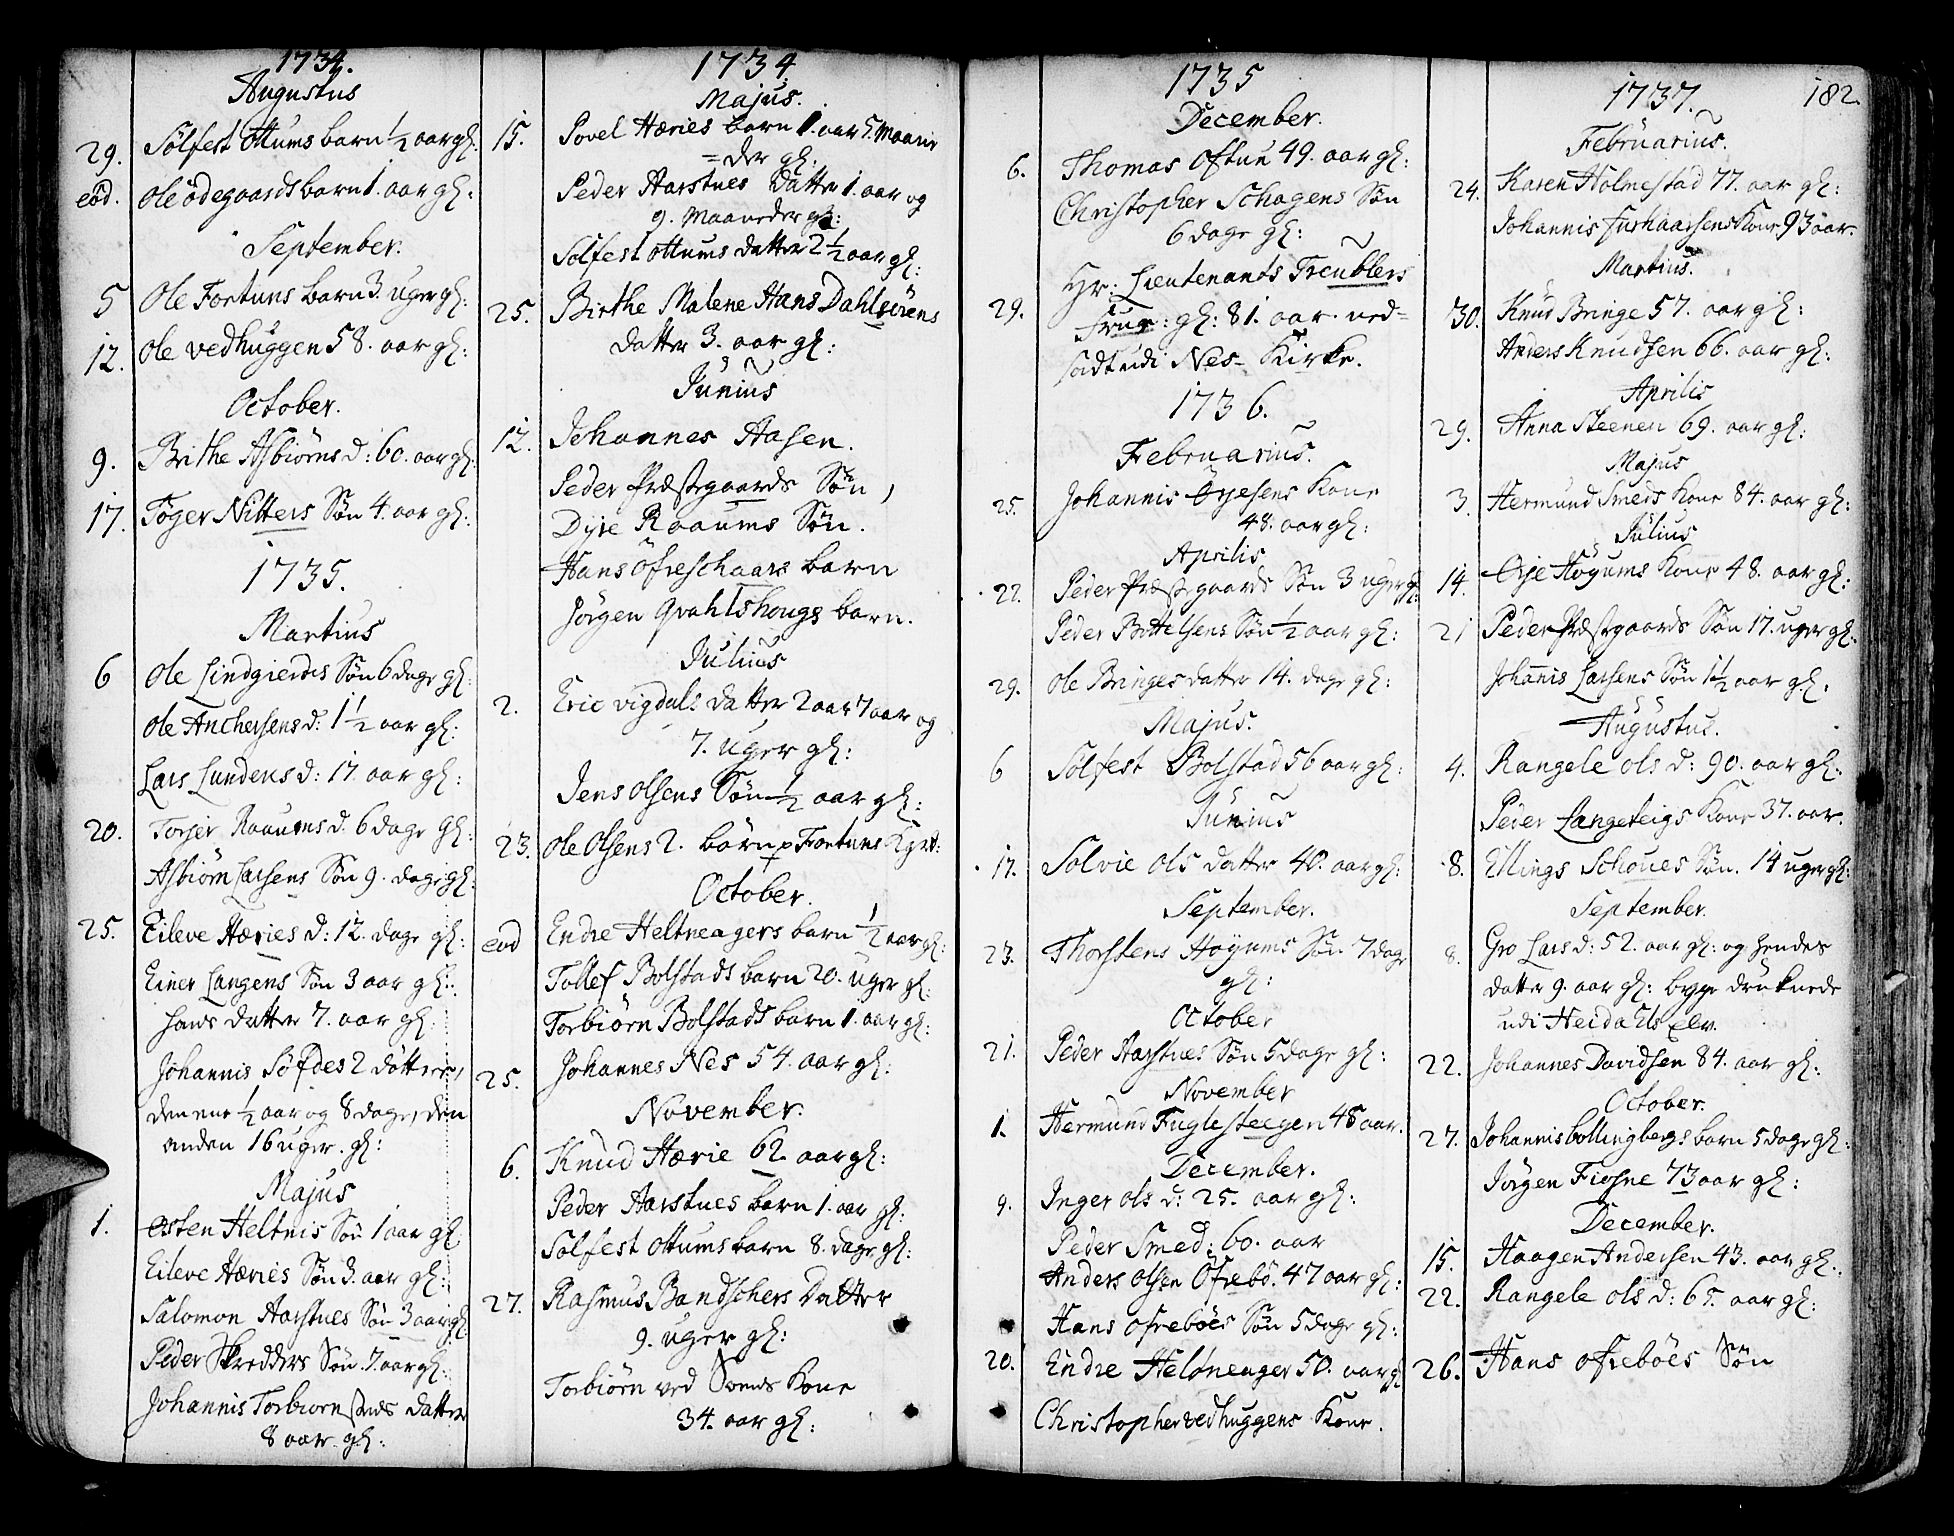 1734.
Augustus
29. Solfest Ottums barn ½ aar gl.
eod. Ole ödegaards barn 1. aar gl:
September.
5 Ole Fortuns barn 3. uger gl:
12. Ole vedhuggen 58. aar gl:
October.
9. Brithe Asbiörns d: 60. aar gl:
17. Töger Nitters Søn 4. aar gl:
1735.
Martius
6 Ole Lindgierdes Søn 6 dage gl:
Ole Anchersens d: 1½ aar gl:
Lars Lundens d: 17. aar gl:
20. Torjer Raaums d. 6 dage gl:
Asbiörn Larsens Søn 9. dage gl:
25. Eileve Hæries d: 12. dage gl:
Einer Langens Søn 3 aar gl:
hans datter 7. aar gl:
Johannis Söfdes 2 döttrer,
den ene ½ aar og 8 dage, den
anden 16 uger. gl:
Majus
1. Østen Heltnis Søn 1 aar gl
Eileve Hæries Søn 3. aar gl:
Salomon Aarstnes Søn 3 aar gl
Peder Skredders Søn. 7. aar gl:
Johannis Torbiornsens datter
8 aar. gl:
1734.
Majus.
15. Povel Hæries barn 1. aar 5. Maane
=der gl:
Peder Aarstnes Datter 1. aar og
9. Maaneder gl:
Solfest ottums datter 2½ aar gl:
25. Birthe Malene Hans Dahlsörens
datter 3. aar gl:
Junius
12. Johannes Aasen.
Peder Præstegaards Søn,
Dyre Raaums Søn.
Hans öfreschaars barn
Jörgen Qvahlshougs barn.
Julius
2. Eric vigdals datter 2 aar 7 aar og
7. uger gl:
Jens Olsens Søn ½ aar gl:
23. Ole Olsens 2. börn p Fortuns Kgrd:
October.
eod Endre Heltneagers barn ½ aar gl:
Tollef Bolstads barn 20. uger gl:
Torbiörn Bolstads barn 1. aar gl:
25. Johannes Nes 54. aar gl:
November.
6. Knud Hærie 62. aar gl:
Peder Aarstnes barn 1. aar gl:
Solfest ottums barn 8. dage gl:
27. Rasmus Bandsokers Datter
9. uger gl:
Torbiörn ved Soens Kone
34. aar gl:
1735
December.
6. Thomas Oftun 49. aar gl:
Christopher Schagens Søn
6 dage gl:
29. Hr: Lieutenants Treublers
Frue: gl: 81. aar. ned=
sadt udi Nes- Kirke.
1736.
Februarius.
25. Johannis Öyesens Kone
48. aar gl:
Aprilis
22. Peder Præstegaards Søn 3 uger gl:
Peder Bottelsens Søn ½ aar gl:
29. Ole Bringes datter 14. dage gl:
Majus.
6 Solfest Bolstad 56 aar gl:
Junius
17. Solvie ols datter 40. aar gl:
September.
23. Thorstens Höyums Søn 7 dage
gl:
October
21. Peder Aarstnes Søn 5 dage gl:
November
1. Hermund Fuglesteegen 48 aar.
December.
9. Inger ols d: 25. aar gl:
Peder Smed: 60. aar
Anders Olsen Öfrebö. 47 aar gl:
Hans Ofreböes Søn 5 dage gl:
20. Endre Heltneager 50. aar gl
Christopher vedhuggens Kone.
182.
1737.
Februarius.
24. Karen Holmestad 77. aar gl:
Johannis Furhaarsens Kone 93 aar.
Martius.
30. Knud Bringe 57. aar gl:
Anders Knudsen 66. aar gl:
Aprilis
29. Anna Steenen 69. aar gl:
Majus
3. Hermund Smeds Kone 84. aar gl:
Julius
14. Orje Höyums Kone 48. aar gl:
21 Peder Præstegaards Søn 17. uger gl:
Johanis Larsens Søn 1½ aar gl.
Augustus.
4. Rangele ols d: 90. aar gl:
Peder Langeteigs Kone 37. aar.
8. Ellings Schoues Søn. 14 uger gl:
September.
8. Gro Lars d: 52. aar gl: og hendes
datter 9. aar gl: byge druknede
udi Heidahls Elv.
22. Johannes Davidsen 84. aar gl:
October.
27. Johannis bollingbergs barn 5 dage gl:
Jörgen Fiosne 73 aar gl:
December.
15. Haagen Andersen 43. aar gl:
22. Rangele ols d: 65. aar gl:
26. Hans ofreböes Søn